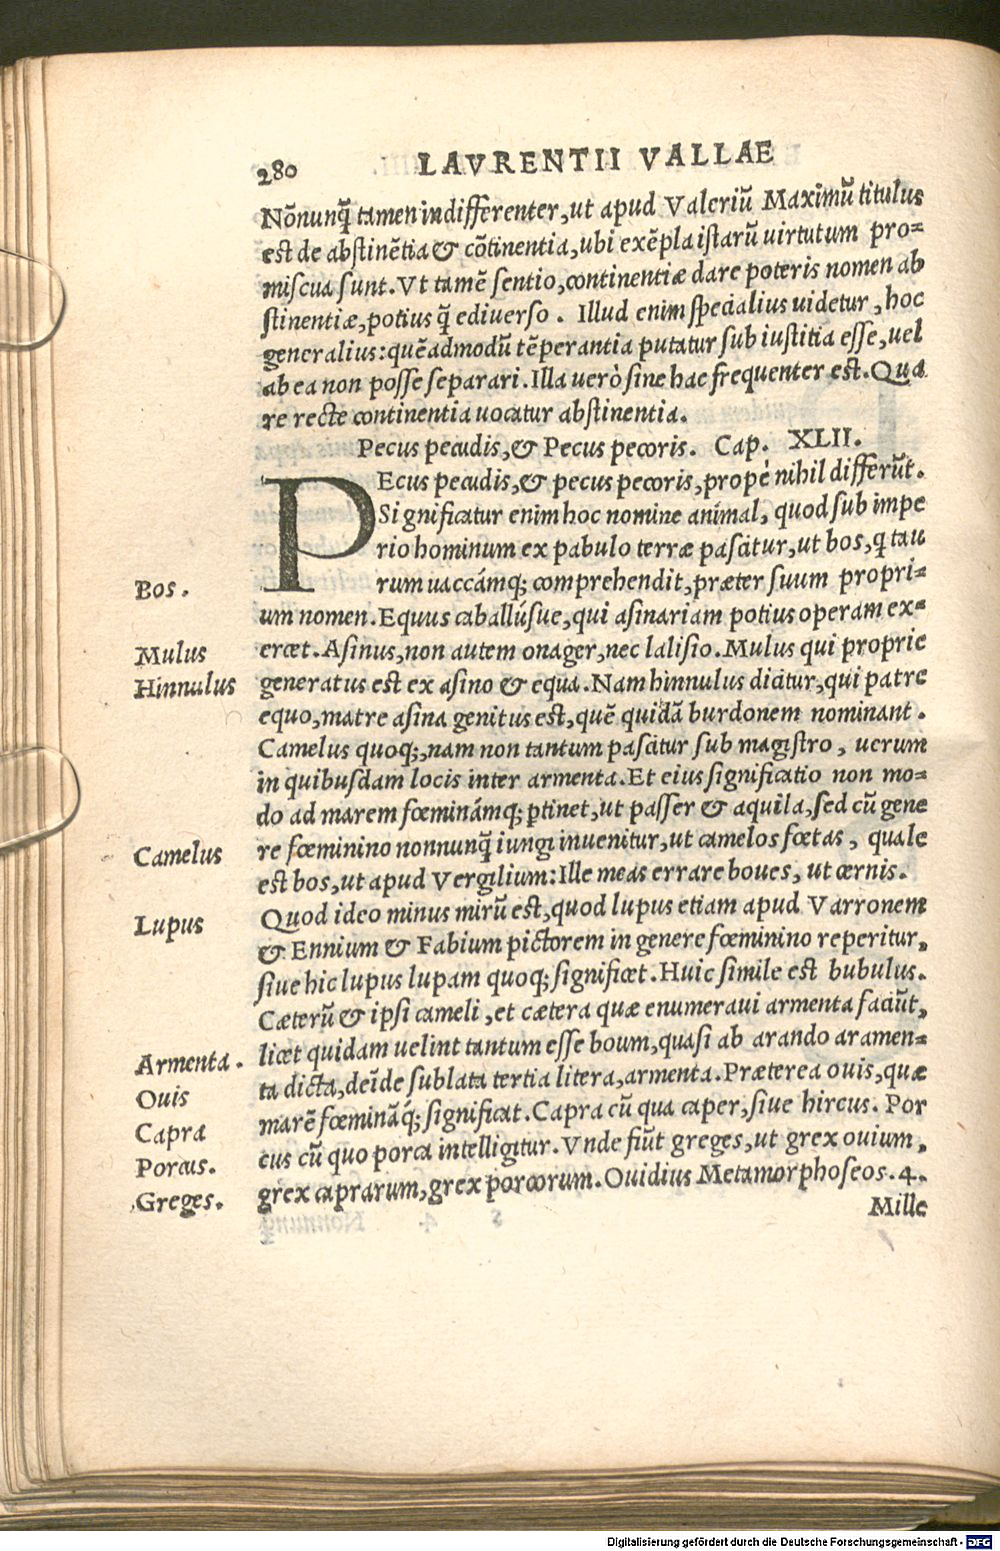 280 LAVRENTII VALLAE
Nōnunq̄ tamen indifferenter, ut apud Valeriū Maximū titulus
est de abstinētia & cōtinentia, ubi exēpla istarū uirtutum pro=
miscua sunt. Vt tamē sentio, continentiæ dare poteris nomen ab
stinentiæ, potius q̄ ediuerso. Illud enim specialius uidetur, hoc
generalius: quēadmodū tēperantia putatur sub iustitia esse, uel
ab ea non posse separari. Illa uerò sine hac frequenter est. Qua
re recte continentia uocatur abstinentia.
Pecus pecudis, & Pecus pecoris. Cap. XLII.
PEcus pecudis, & pecus pecoris, propè nihil differūt.
Significatur enim hoc nomine animal, quod sub impe
rio hominum ex pabulo terræ pascitur, ut bos, q tau
Bos.
rum uaccámq; comprehendit, præter suum propri=
um nomen. Equus caballúsue, qui asinariam potius operam ex=
Mulus
ercet. Asinus, non autem onager, nec lalisio. Mulus qui proprie
Hinnulus
generatus est ex asino & equa. Nam hinnulus dicitur, qui patre
equo, matre asina genitus est, quē quidā burdonem nominant.
Camelus quoq;, nam non tantum pascitur sub magistro, uerum
in quibusdam locis inter armenta. Et eius significatio non mo=
do ad marem fœminámq; ꝑtinet, ut passer & aquila, sed cū gene
Camelus
re fœminino nonnunq̄ iungi inuenitur, ut camelos fœtas, quale
est bos, ut apud Vergilium: Ille meas errare boues, ut cernis.
Lupus
Quod ideo minus mirū est, quod lupus etiam apud Varronem
& Ennium & Fabium pictorem in genere fœminino reperitur,
siue hic lupus lupam quoq; significet. Huic simile est bubulus.
Cæterū & ipsi cameli, et cætera quæ enumeraui armenta faciūt,
Armenta.
licet quidam uelint tantum esse boum, quasi ab arando aramen=
Ouis
ta dicta, deīde sublata tertia litera, armenta. Præterea ouis, quæ
Capra
marē fœmināq́; significat. Capra cū qua caper, siue hircus. Por
Porcus.
cus cū quo porca intelligitur. Vnde fiūt greges, ut grex ouium,
Greges.
grex caprarum, grex porcorum. Ouidius Metamorphoseos. 4.
Mille
Digitalisierung gefördert durch die Deutsche Forschungsgemeinschaft - DFG